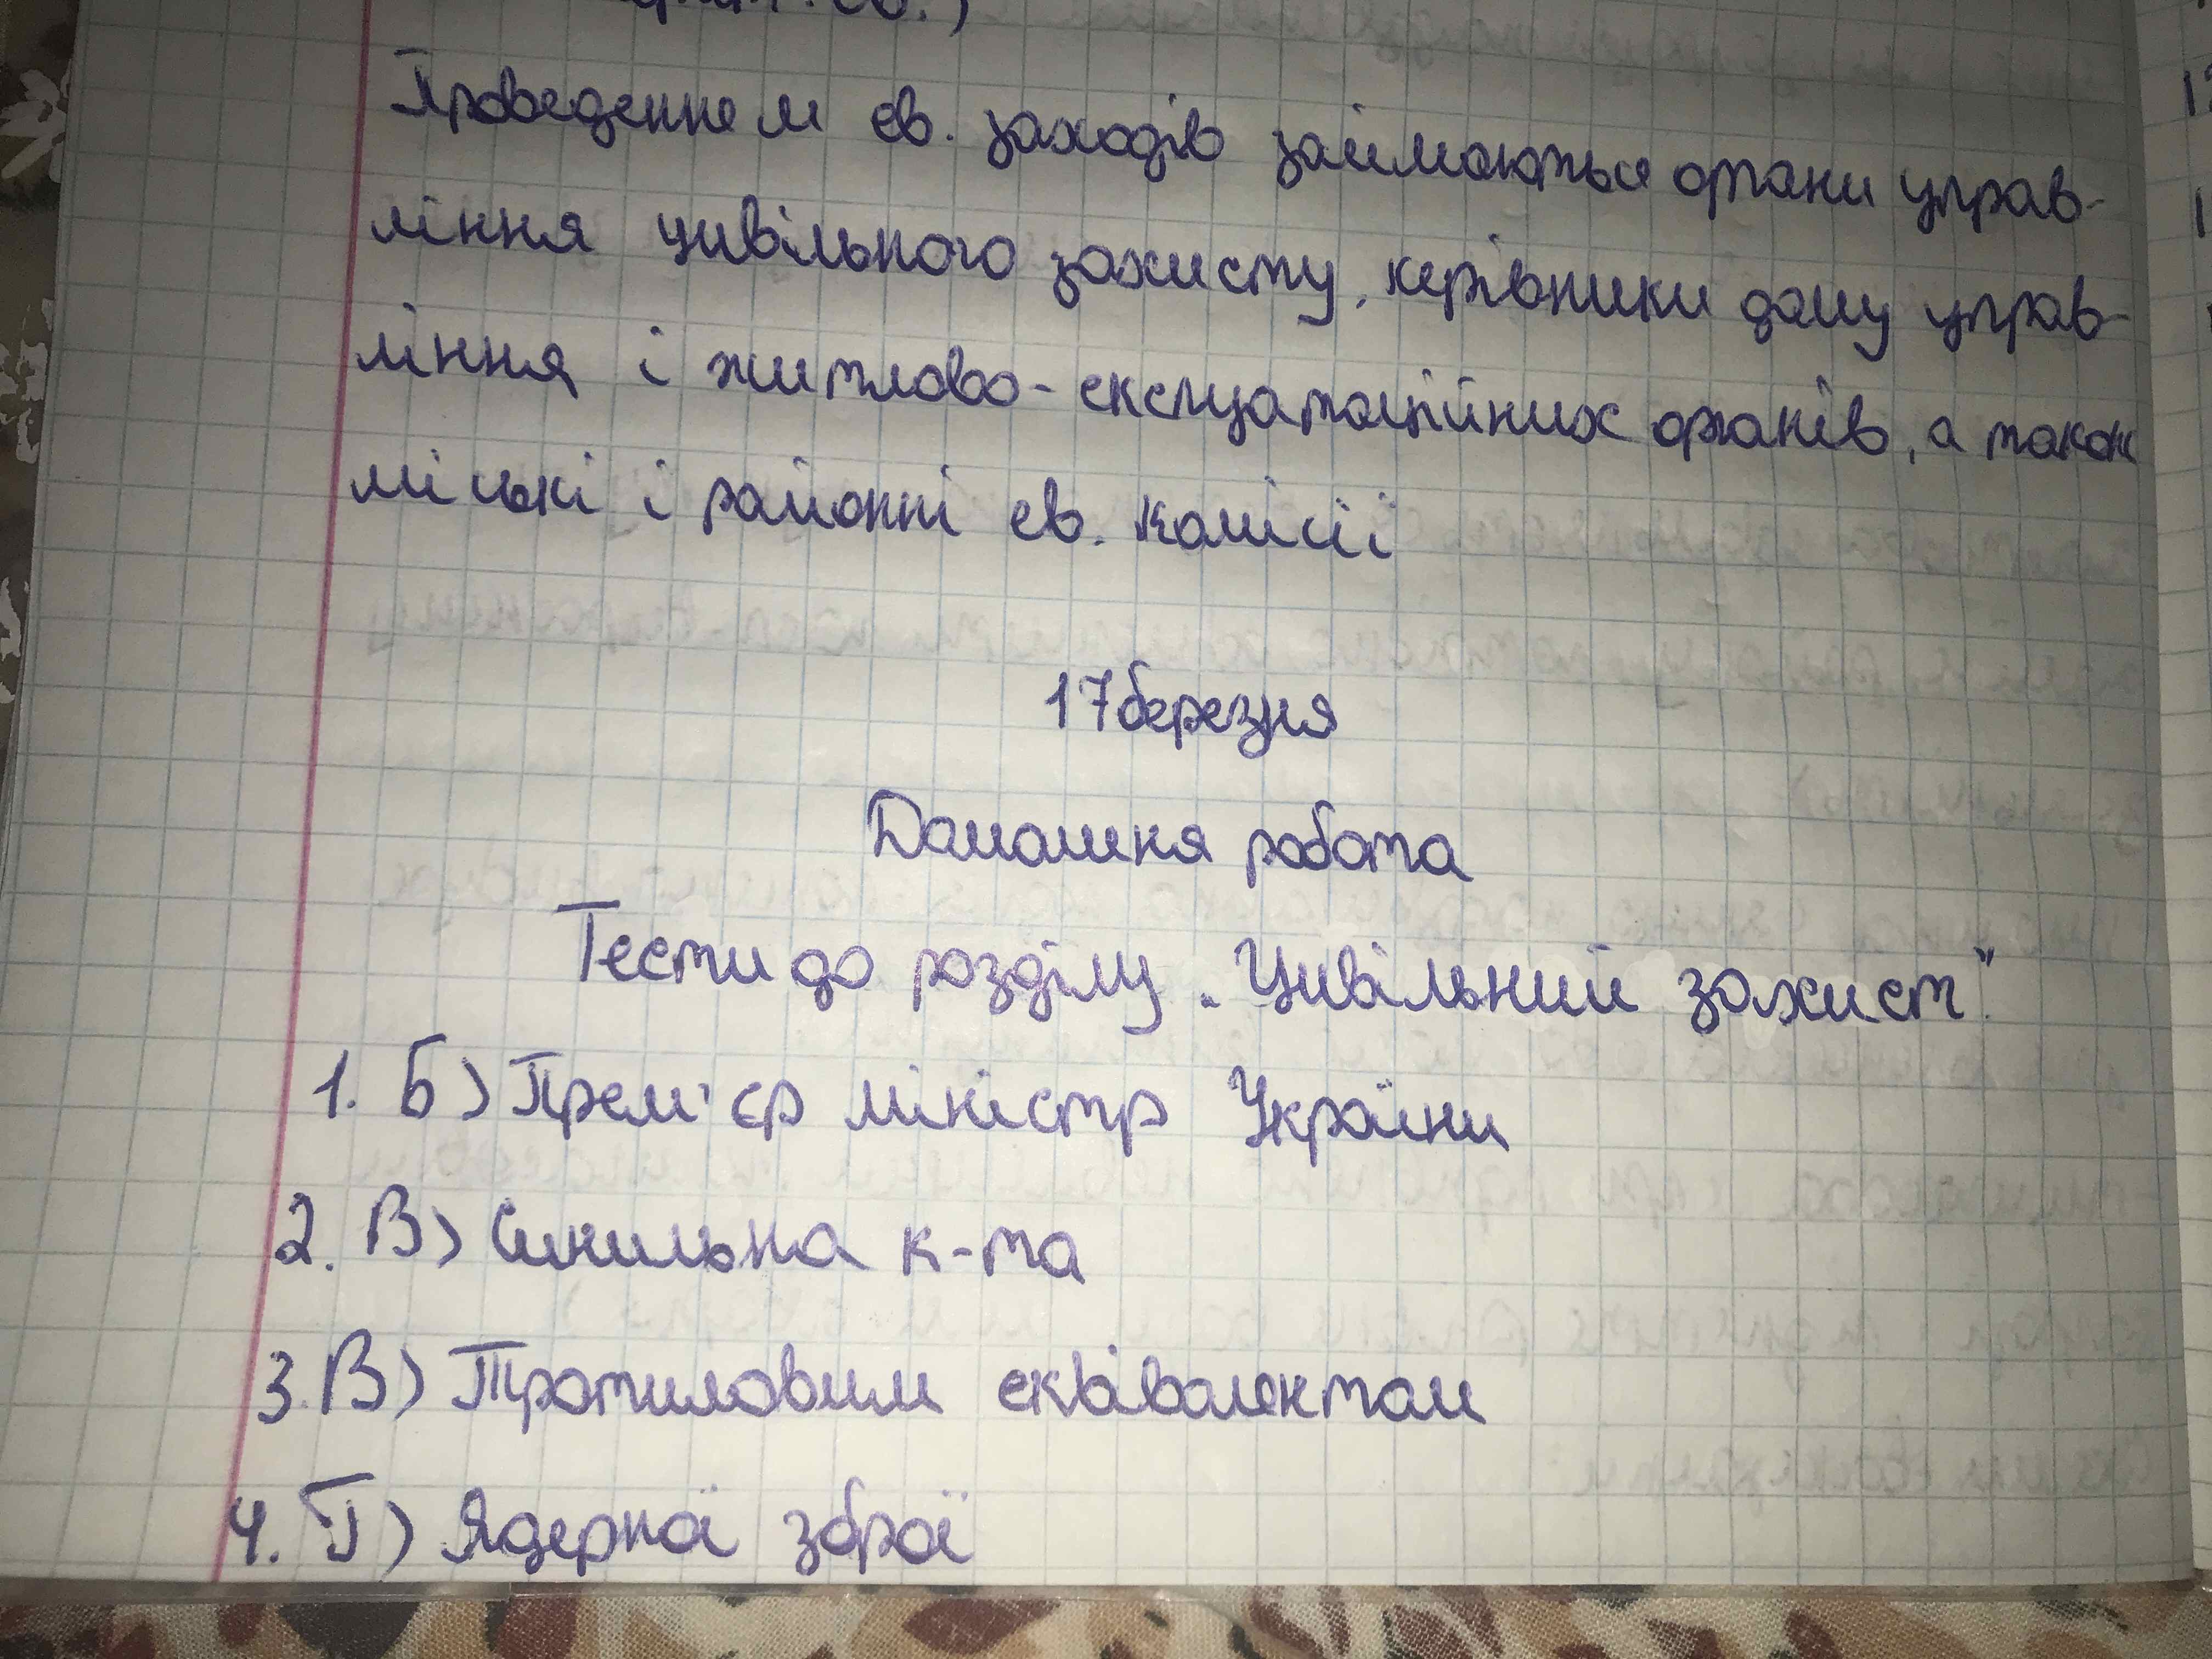 Проведенням ев. заходів займаються органи управ-
ління цивільного захисту, керівники дому управ-
ління і житлово-експуатаційних органів, а також
міські і районні ев. комісії
17 березня
Домашня робота
Тести до розділу „Цивільний захист"
1. Б) Прем'єр міністр України
2. В) Синильна к-та
3. В) Тротиловим еквівалентом
4. Г) Ядерної зброї